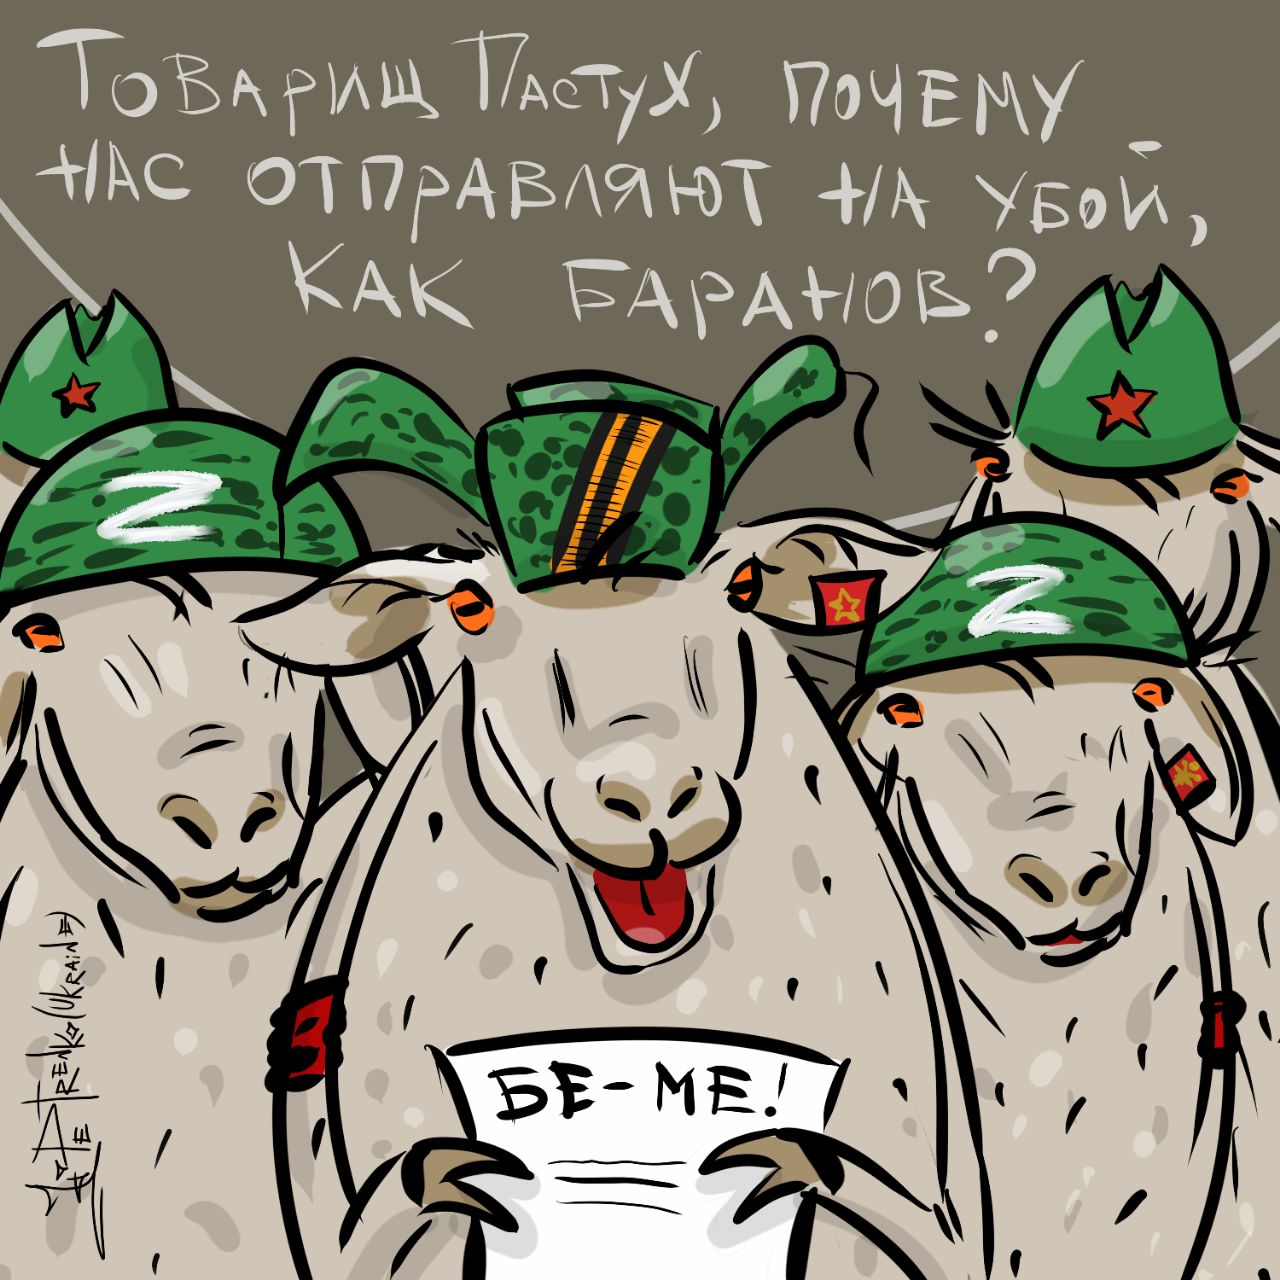 Товарищ Пастух, почему
нас отправляют на убой,
как баранов?
Z
Z
БЕ-МЕ!
PETRENKO/UKRAINE